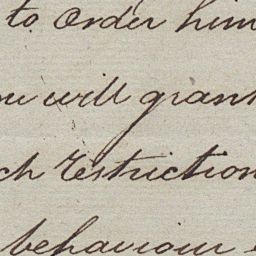 to order him
will grant
restriction
behaviour